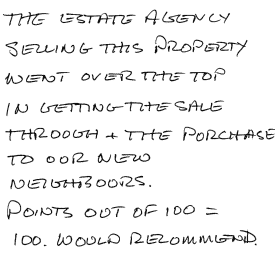 THE ESTATE AGENCY
SELLING THIS PROPERTY
WENT OVER THE TOP
IN GETTING THE SALE
THROUGH + THE PURCHASE
TO OUR NEW
NEIGHBOURS.
POINTS OUT OF 100 =
100. WOULD RECOMMEND.